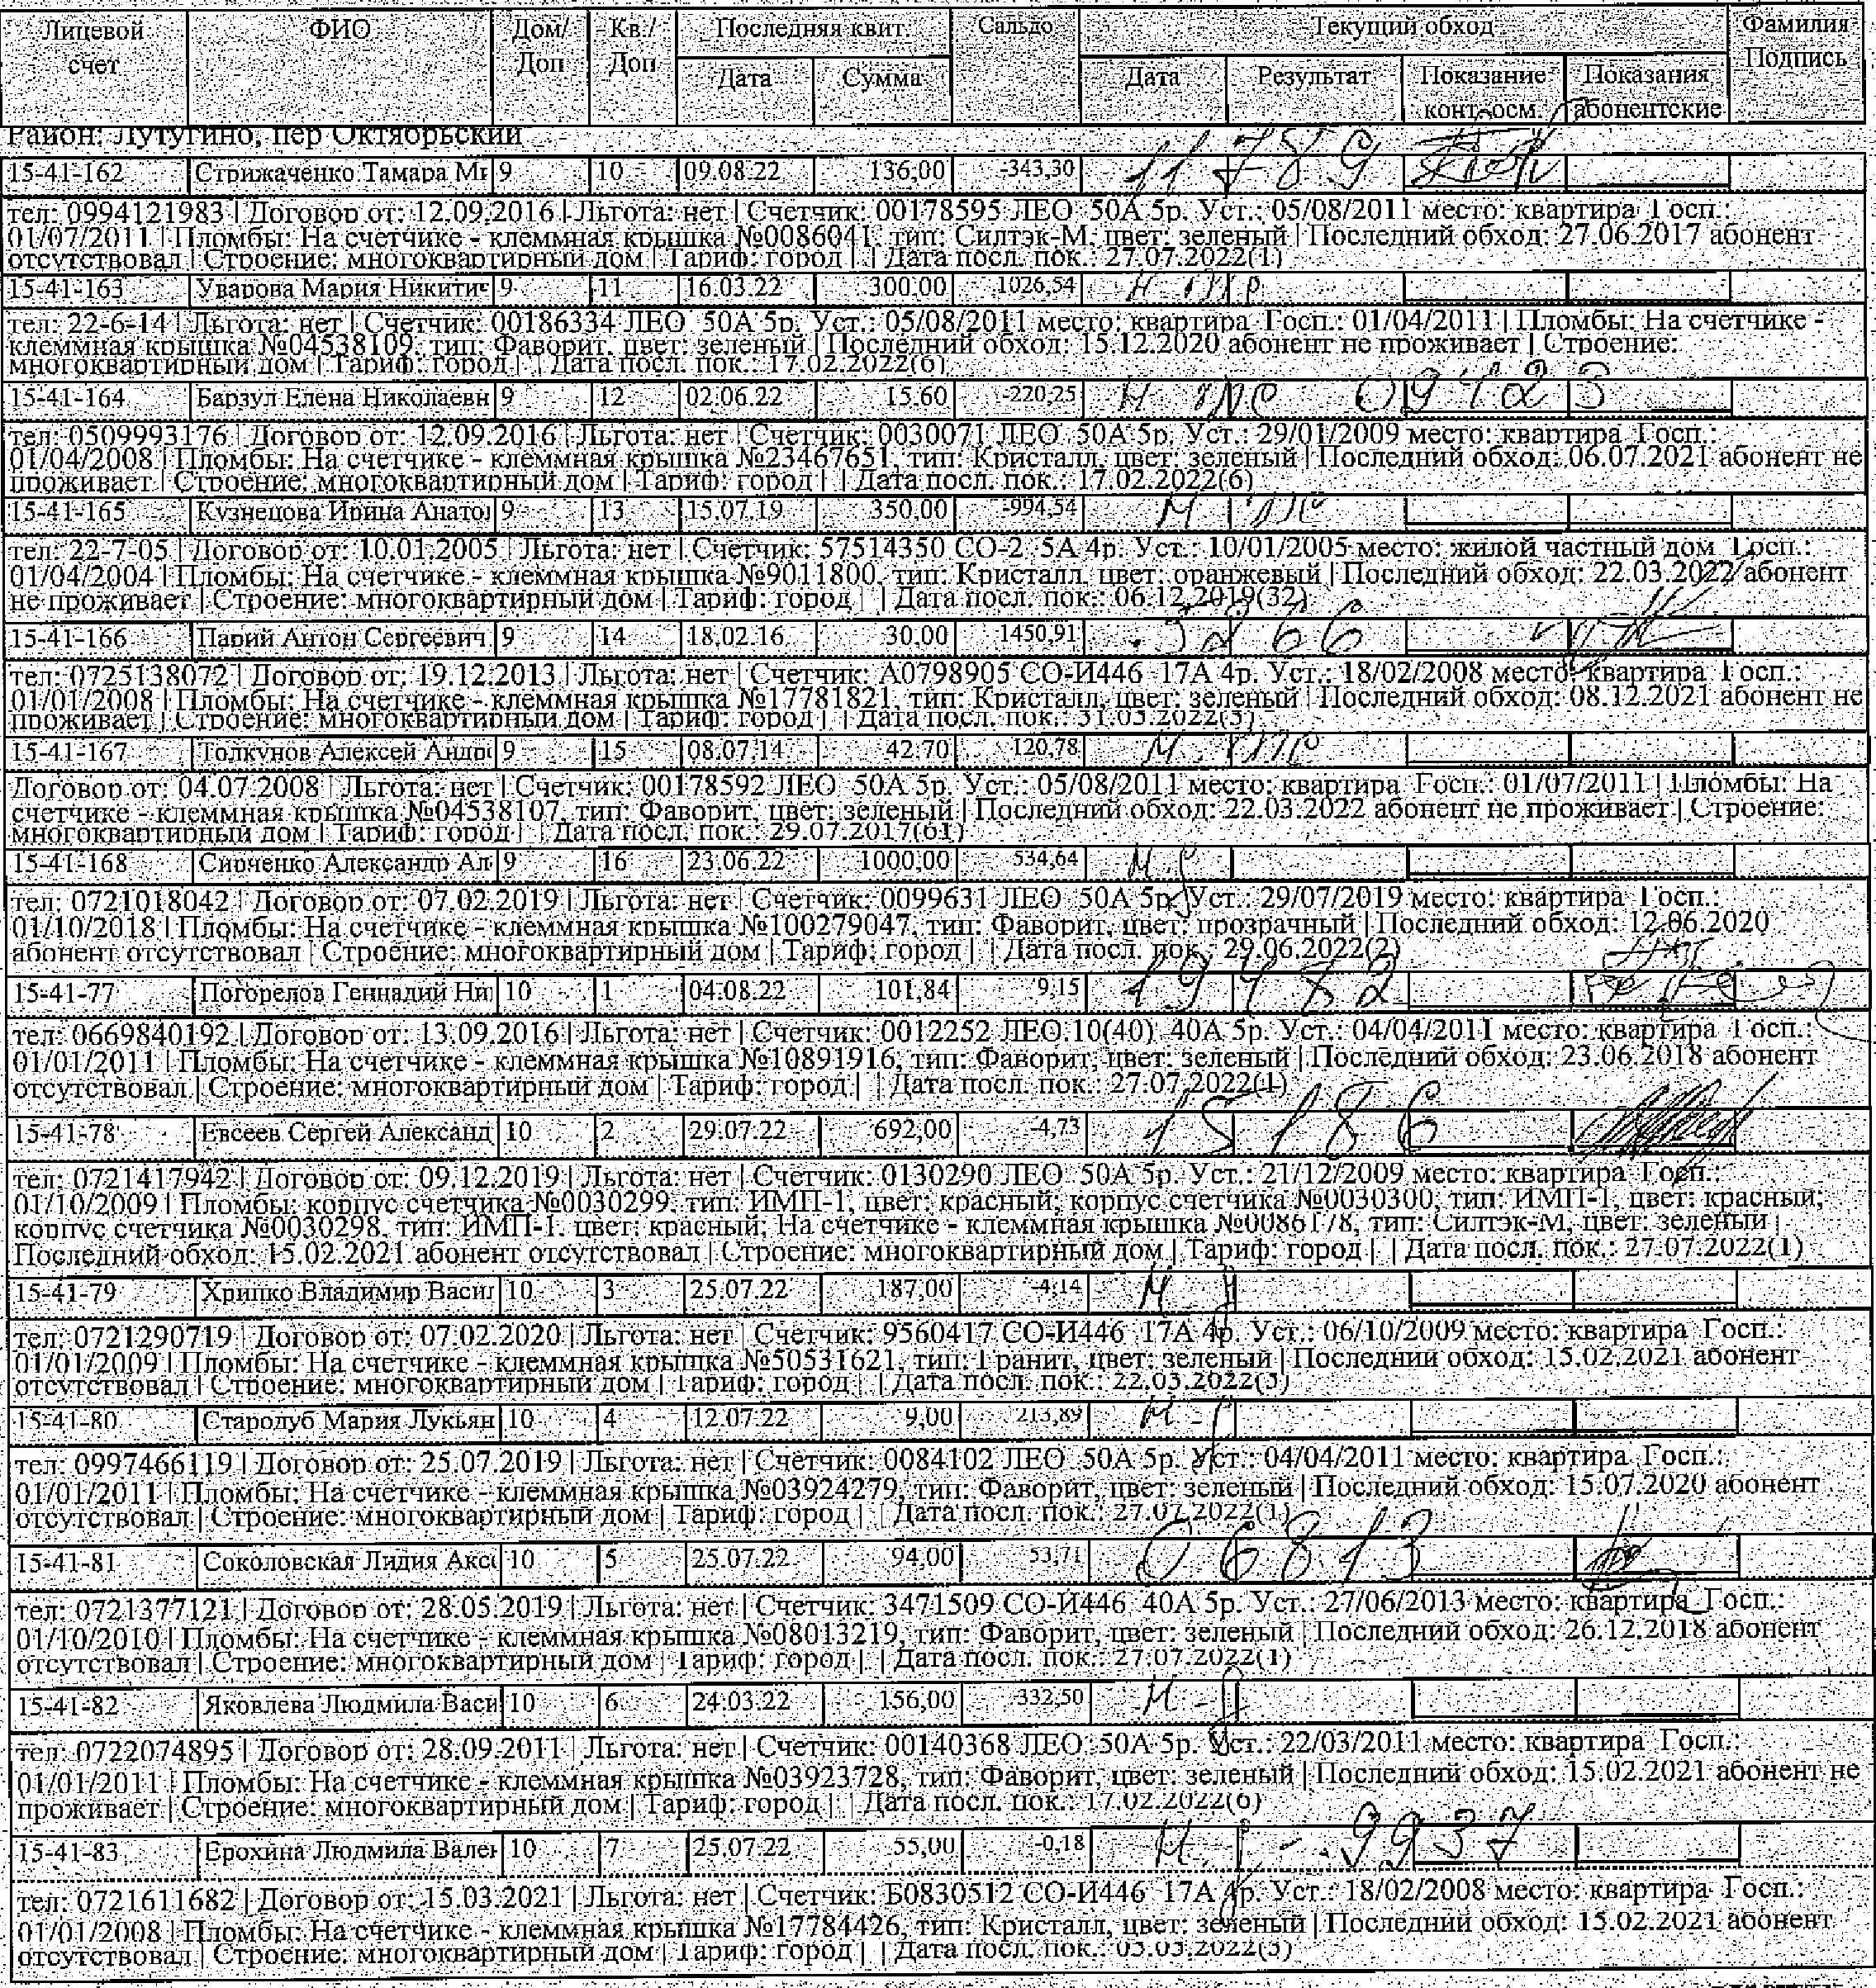 Лицевой счет ФИО Дом/Доп Кв./Доп Последняя квит. Сальдо Текущий обход Фамилия Подпись
Дата Сумма Дата Результат Показание конт. осм. Показания абонентские
Район: Лутугино, пер Октябрьский
15-41-162 Стрижаченко Тамара Ми 9 10 09.08.22 136,00 -343,30 11789
тел: 0994121983 | Договор от: 12.09.2016 | Льгота: нет | Счетчик: 00178595 ЛЕО 50А 5р. Уст.: 05/08/2011 место: квартира Госп.:
01/07/2011 | Пломбы: На счетчике - клеммная крышка №0086041, тип: Силтэк-М, цвет: зеленый | Последний обход: 27.06.2017 абонент
отсутствовал | Строение: многоквартирный дом | Тариф: город | | Дата посл. пок.: 27.07.2022(1)
15-41-163 Уварова Мария Никитич 9 11 16.03.22 300.00 1026,54
тел: 22-6-14 | Льгота: нет | Счетчик: 00186334 ЛЕО 50А 5р. Уст.: 05/08/2011 место: квартира Госп.: 01/04/2011 | Пломбы: На счетчике -
клеммная крышка №04538109, тип: Фаворит, цвет: зеленый | Последний обход: 15.12.2020 абонент не проживает | Строение:
многоквартирный дом | Тариф: город | | Дата посл. пок.: 17.02.2022(6)
15-41-164 Барзул Елена Николаевн 9 12 02.06.22 15,60 -220,25 09423
тел: 0509993176 | Договор от: 12.09.2016 | Льгота: нет | Счетчик: 0030071 ЛЕО 50А 5р. Уст.: 29/01/2009 место: квартира Госп.:
01/04/2008 | Пломбы: На счетчике - клеммная крышка №23467651, тип: Кристалл, цвет: зеленый | Последний обход: 06.07.2021 абонент не
проживает | Строение: многоквартирный дом | Тариф: город | | Дата посл. пок.: 17.02.2022(6)
15-41-165 Кузнецова Ирина Анатол 9 13 15.07.19 350.00 -994,54
тел: 22-7-05 | Договор от: 10.01.2005 | Льгота: нет | Счетчик: 57514350 СО-2 5А 4р. Уст.: 10/01/2005 место: жилой частный дом Госп.:
01/04/2004 | Пломбы: На счетчике - клеммная крышка №9011800, тип: Кристалл, цвет: оранжевый | Последний обход: 22.03.2022 абонент
не проживает | Строение: многоквартирный дом | Тариф: город | | Дата посл. пок.: 06.12.2019(32)
15-41-166 Парий Антон Сергеевич 9 14 18.02.16 30.00 1450,91
тел: 0725138072 | Договор от: 19.12.2013 | Льгота: нет | Счетчик: А0798905 СО-И446 17А 4р. Уст.: 18/02/2008 место: квартира Госп.:
01/01/2008 | Пломбы: На счетчике - клеммная крышка №17781821, тип: Кристалл, цвет: зеленый | Последний обход: 08.12.2021 абонент не
проживает | Строение: многоквартирный дом | Тариф: город | | Дата посл. пок.: 31.05.2022(3)
15-41-167 Толкунов Алексей Андре 9 15 08.07.14 42.70 120,78
Договор от: 04.07.2008 | Льгота: нет | Счетчик: 00178592 ЛЕО 50А 5р. Уст.: 05/08/2011 место: квартира Госп.: 01/07/2011 | Пломбы: На
счетчике - клеммная крышка №04538107, тип: Фаворит, цвет: зеленый | Последний обход: 22.03.2022 абонент не проживает | Строение:
многоквартирный дом | Тариф: город | | Дата посл. пок.: 29.07.2017(61)
15-41-168 Сирченко Александр Ал 9 16 23.06.22 1000.00 534,64
тел: 0721018042 | Договор от: 07.02.2019 | Льгота: нет | Счетчик: 0099631 ЛЕО 50А 5р. Уст.: 29/07/2019 место: квартира Госп.:
01/10/2018 | Пломбы: На счетчике - клеммная крышка №100279047, тип: Фаворит, цвет: прозрачный | Последний обход: 12.06.2020
абонент отсутствовал | Строение: многоквартирный дом | Тариф: город | | Дата посл. пок.: 29.06.2022(2)
15-41-77 Погорелов Геннадий Ни 10 1 04.08.22 101,84 9,15 19482
тел: 0669840192 | Договор от: 13.09.2016 | Льгота: нет | Счетчик: 0012252 ЛЕО 10(40) 40А 5р. Уст.: 04/04/2011 место: квартира Госп.:
01/01/2011 | Пломбы: На счетчике - клеммная крышка №10891916, тип: Фаворит, цвет: зеленый | Последний обход: 23.06.2018 абонент
отсутствовал | Строение: многоквартирный дом | Тариф: город | | Дата посл. пок.: 27.07.2022(1)
15-41-78 Евсеев Сергей Александ 10 2 29.07.22 692,00 -4,73 15186
тел: 0721417942 | Договор от: 09.12.2019 | Льгота: нет | Счетчик: 0130290 ЛЕО 50А 5р. Уст.: 21/12/2009 место: квартира Госп.:
01/10/2009 | Пломбы: корпус счетчика №0030299, тип: ИМП-1, цвет: красный; корпус счетчика №0030300, тип: ИМП-1, цвет: красный;
корпус счетчика №0030298, тип: ИМП-1, цвет: красный; На счетчике - клеммная крышка №0086178, тип: Силтэк-М, цвет: зеленый |
Последний обход: 15.02.2021 абонент отсутствовал | Строение: многоквартирный дом | Тариф: город | | Дата посл. пок.: 27.07.2022(1)
15-41-79 Хрипко Владимир Васил 10 3 25.07.22 187,00 -4,14
тел: 0721290719 | Договор от: 07.02.2020 | Льгота: нет | Счетчик: 9560417 СО-И446 17А 4р. Уст.: 06/10/2009 место: квартира Госп.:
01/01/2009 | Пломбы: На счетчике - клеммная крышка №50531621, тип: Гранит, цвет: зеленый | Последний обход: 15.02.2021 абонент
отсутствовал | Строение: многоквартирный дом | Тариф: город | | Дата посл. пок.: 22.03.2022(5)
15-41-80 Стародуб Мария Лукьян 10 4 12.07.22 9,00 213,89
тел: 0997466119 | Договор от: 25.07.2019 | Льгота: нет | Счетчик: 0084102 ЛЕО 50А 5р. Уст.: 04/04/2011 место: квартира Госп.:
01/01/2011 | Пломбы: На счетчике - клеммная крышка №03924279, тип: Фаворит, цвет: зеленый | Последний обход: 15.07.2020 абонент
отсутствовал | Строение: многоквартирный дом | Тариф: город | | Дата посл. пок.: 27.07.2022(1)
15-41-81 Соколовская Лидия Аксе 10 5 25.07.22 94.00 53,71 06813
тел: 0721377121 | Договор от: 28.05.2019 | Льгота: нет | Счетчик: 3471509 СО-И446 40А 5р. Уст.: 27/06/2013 место: квартира Госп.:
01/10/2010 | Пломбы: На счетчике - клеммная крышка №08013219, тип: Фаворит, цвет: зеленый | Последний обход: 26.12.2018 абонент
отсутствовал | Строение: многоквартирный дом | Тариф: город | | Дата посл. пок.: 27.07.2022(1)
15-41-82 Яковлева Людмила Васи 10 6 24.03.22 156,00 332,50
тел: 0722074895 | Договор от: 28.09.2011 | Льгота: нет | Счетчик: 00140368 ЛЕО 50А 5р. Уст.: 22/03/2011 место: квартира Госп.:
01/01/2011 | Пломбы: На счетчике - клеммная крышка №03923728, тип: Фаворит, цвет: зеленый | Последний обход: 15.02.2021 абонент не
проживает | Строение: многоквартирный дом | Тариф: город | | Дата посл. пок.: 17.02.2022(6)
15-41-83 Ерохина Людмила Вален 10 7 25.07.22 55,00 -0,18 9937
тел: 0721611682 | Договор от: 15.03.2021 | Льгота: нет | Счетчик: Б0830512 СО-И446 17А 4р. Уст.: 18/02/2008 место: квартира Госп.:
01/01/2008 | Пломбы: На счетчике - клеммная крышка №17784426, тип: Кристалл, цвет: зеленый | Последний обход: 15.02.2021 абонент
отсутствовал | Строение: многоквартирный дом | Тариф: город | | Дата посл. пок.: 03.03.2022(5)